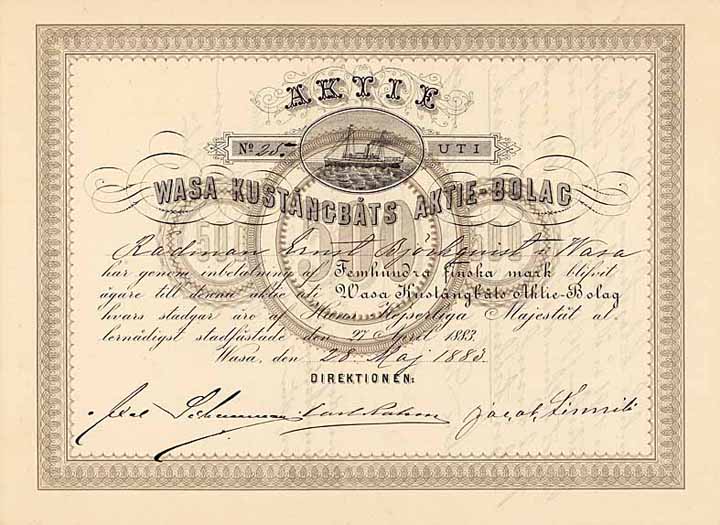 AKTIE
No 25. UTI
WASA KUSTÅNGBÅTS AKTIE-BOLAG
500 500 500
Rådman Ernst Björkqvist i Wasa
har genom inbetalning af Femhundra finska mark blifvit
ägare till denna aktie uti Wasa Kustångbåts Aktie-Bolag
hvars stadgar äro af Hans Kejserliga Majestät al-
lernådigst stadfästade den 27 April 1883.
Wasa, den 28 Maj 1883.
DIREKTIONEN:
Axel Schauman Jacob Finnilä